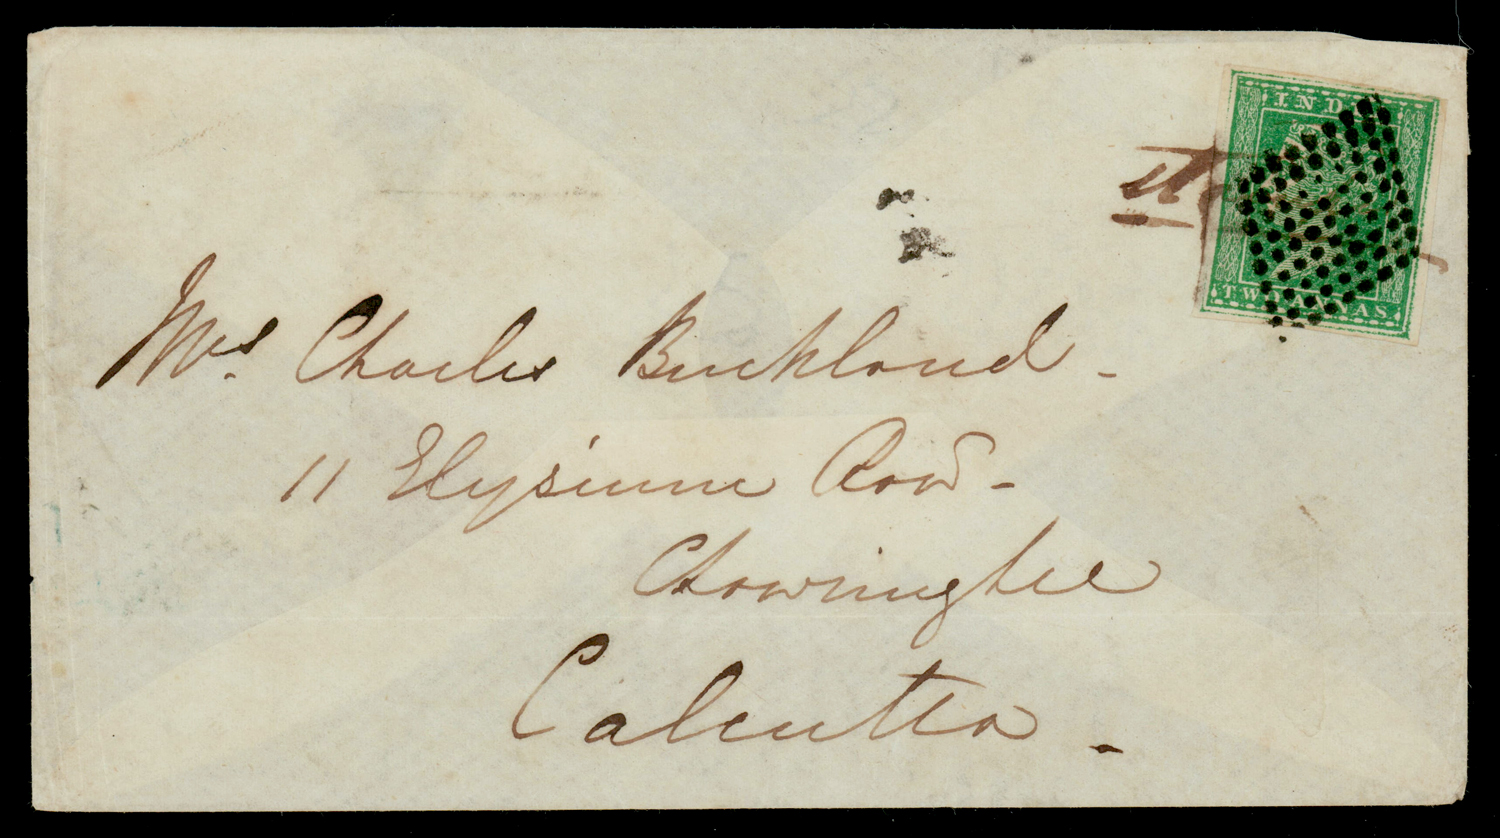 INDIA
TWO ANNAS
Mrs. Charles Buckland -
11 Elysium Row -
Chowringhee
Calcutta.